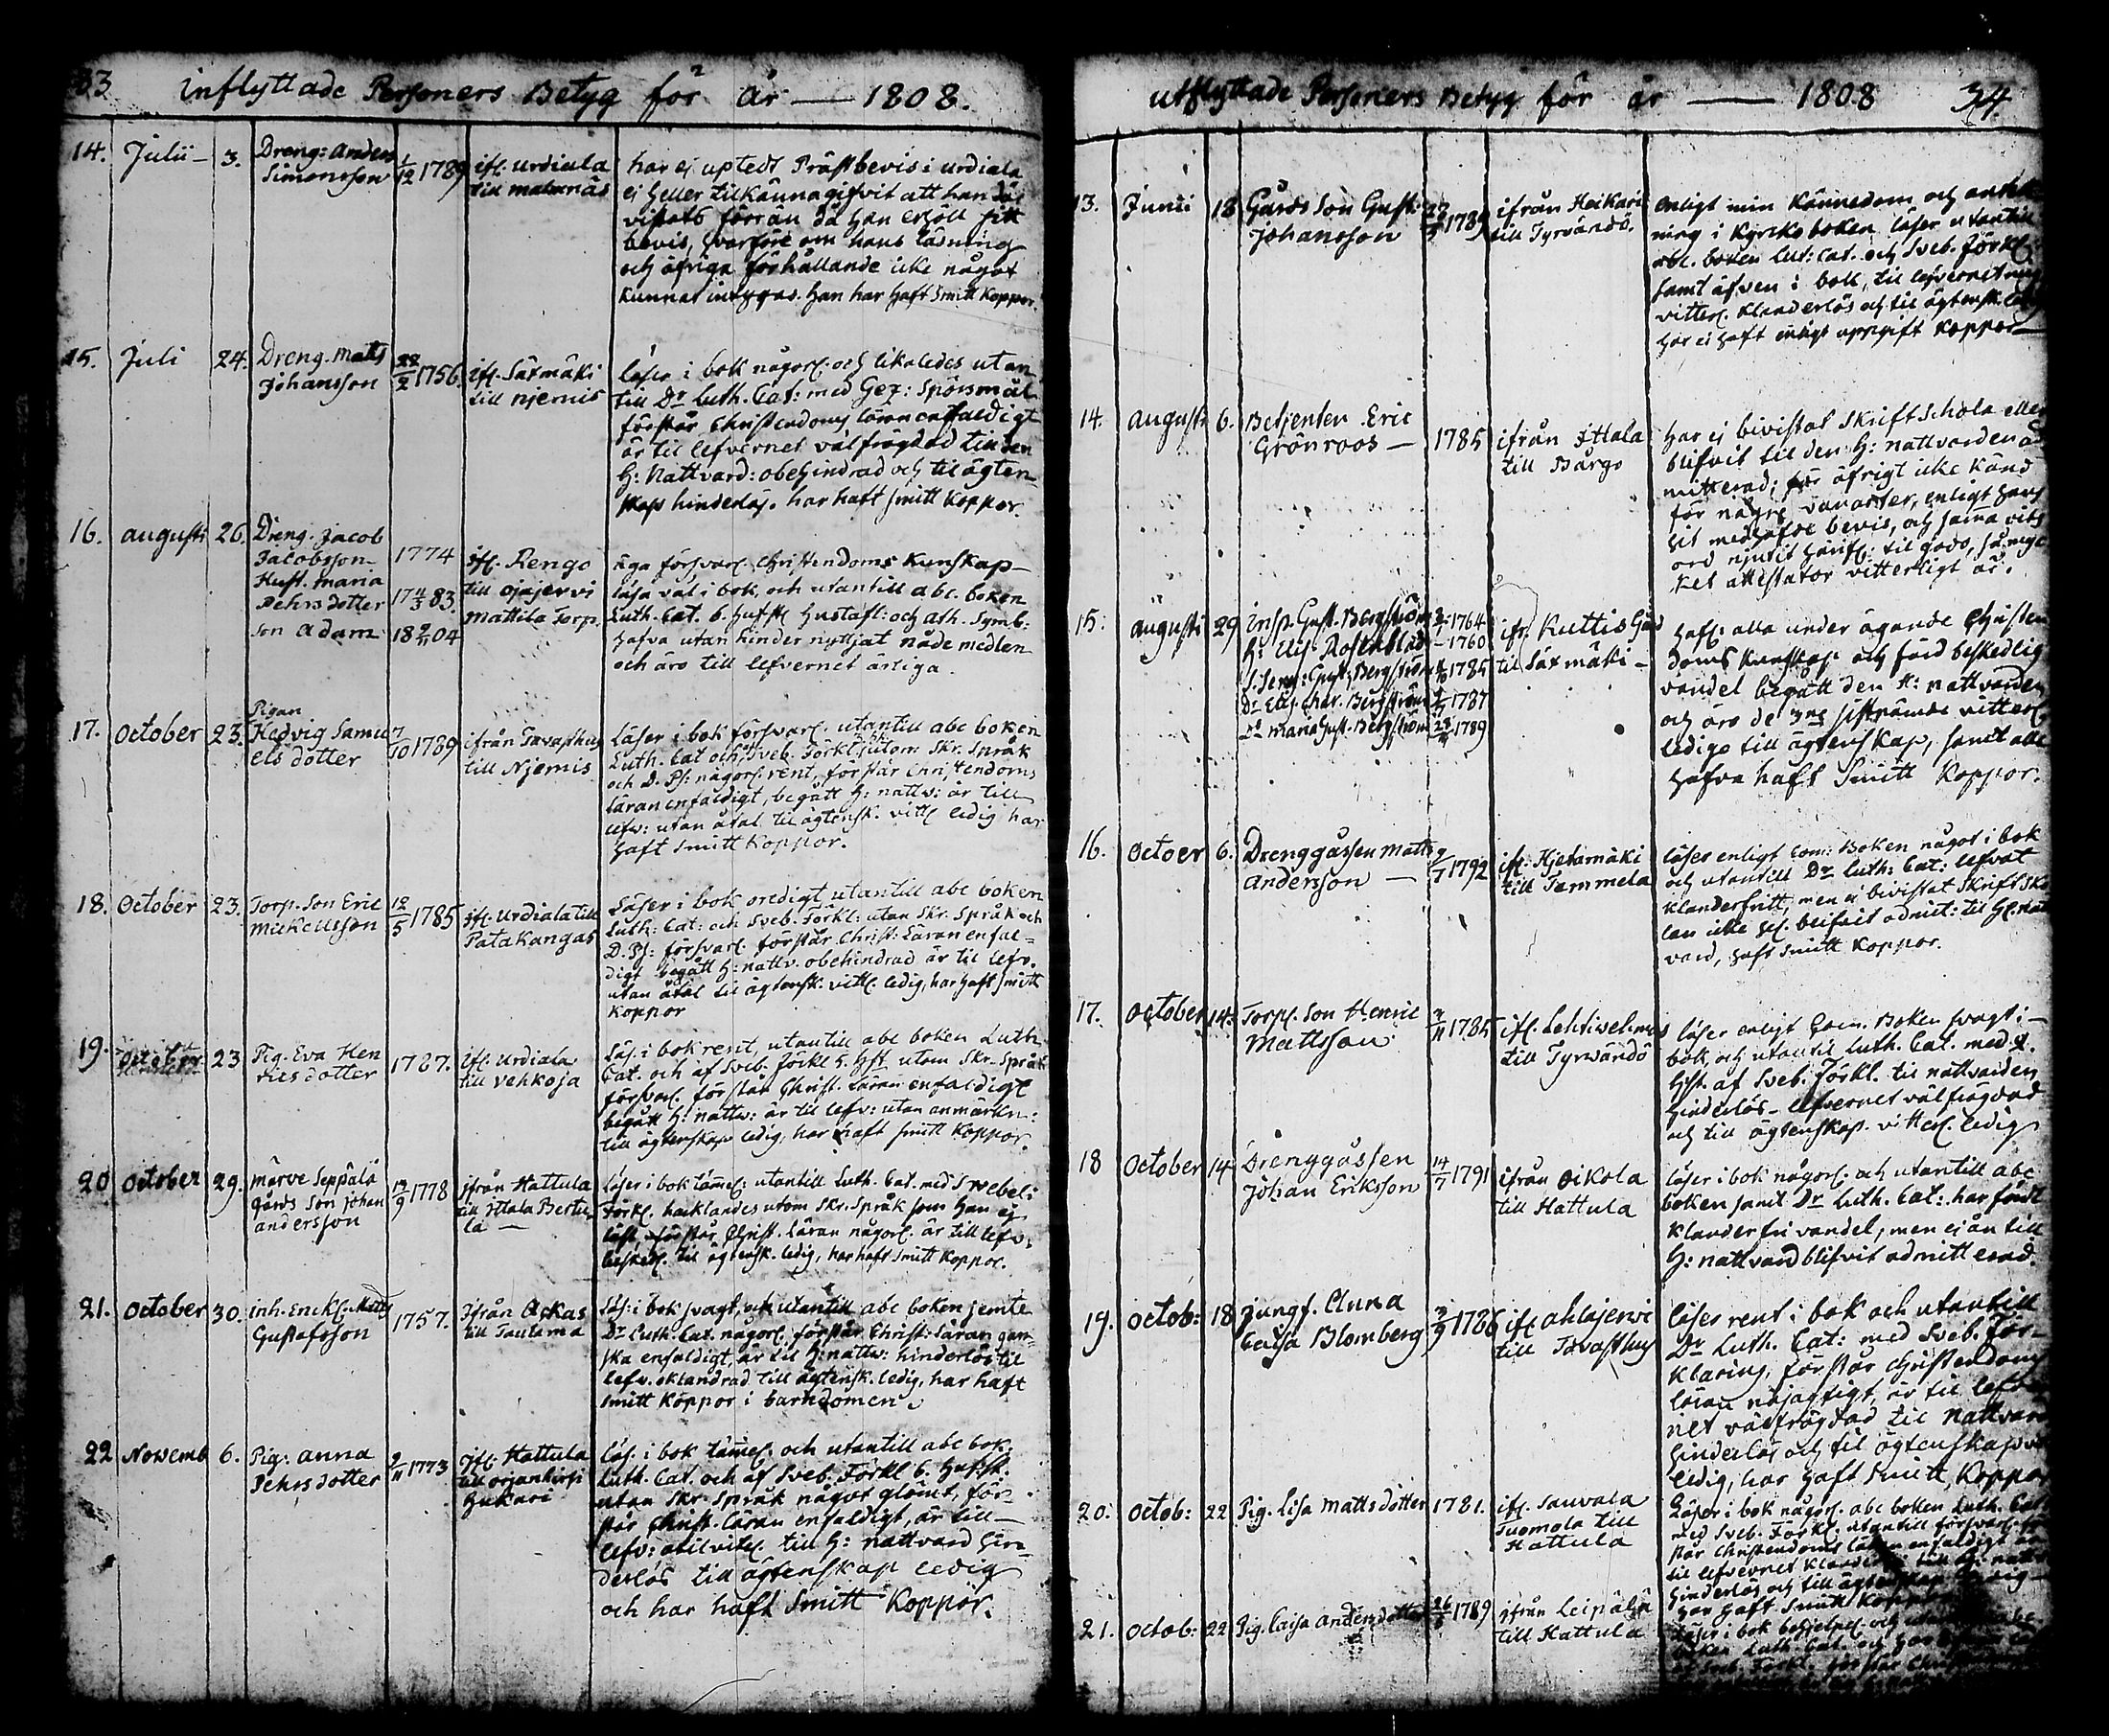 33 Inflyttade Personers Betyg för år — 1808.
14. Julii — 3. Dreng: Anders 1/12 1789 ifl. Urdiala har ej uptedt Prästbevis i Urdiala
Simonsson till Matarnäs ej heller tilkännagifvit att han där
vistats förrän då han erhöll sitt
bevis, hvarföre om hans läsning
och öfriga förhållande icke något
kunnat intygas. Han har haft Smitt Koppor.
15. Juli 24. Dreng. Matts 22/2 1756 ifl. Säxmäki läser i bok någorl. och likaledes utan
Johansson till Njemis till Dr Luth. Cat: med Gez: Spörsmål
förstår Christendoms läran enfaldigt
är til lefvernet välfrägdad till den
H: Nattvard: obehindrad och til ägten-
skap hinderlös. har haft Smitt Koppor.
16. Augusti 26. Dreng. Jacob
Jacobsson 1774 ifl. Rengo äga försvarl. Christendoms Kunskap
Hust. Maria till Ojajervi läsa väl i bok, och utantill abc. boken
Pehrsdotter 17 4/3 83. Mattila Torp. Luth. Cat. 6. Hufst. Hustafl: och Ath. Symb:
Son Adam 18 9/11 04 hafva utan hinder nyttjat nåde medlen
och äro till lefvernet ärliga.
17. October 23. Pigan
Hedvig Samu 7/10 1789 ifrån Tavasthus Läser i bok försvarl. utantill abc boken
els dotter till Njemis Luth. Cat och Sveb. Förkl utom Skr. Språk
och D. Ps: någorl. rent, förstår Christendoms
läran enfaldigt, begått H: nattv: är till
lefv: utan åtal til ägtensk. vittl ledig har
haft Smitt Koppor.
18. October 23. Torp. Son Eric 12/5 1785 ifl. Urdiala till Läser i bok oredigt utantill abc boken
Mickellsson Patakangas Luth: Cat: och Sveb. Förkl: utan Skr. Språk och
D. Ps: försvarl. förstår Christ: Läran enfal-
digt begått H: nattv. obehindrad är til lefv.
utan åtal til ägtensk. vittl. ledig, har haft smitt
Koppor
19. October 23 Pig. Eva Hen 1787. ifl. Urdiala Läs. i bok rent, utantill abc boken Luth
rics dotter till Vehkoja Cat. och af Sveb. Förkl 5. Hfst utom Skr. Språk
försvarl. förstår Christ. Läran enfaldigt
begått H: nattv: är til lefv: utan anmärkn:
till ägtenskap ledig, har haft smitt Koppor.
20 October 29. Märve Seppälä 13/9 1778 ifrån Hattula läser i bok tämel: utantill Luth. Cat. med Swebel:
gårds Son Johan till Ittala Bertu- Förkl. hacklandes utom Skr. Språk som han ej
Andersson la — läst, förstår Christ. Läran någorl. är till lefv:
beskedl. til ägtensk. ledig, har haft Smitt Koppor.
21. October 30. inh. Enckl. Matts 1757. Ifrån Ackas Läs: i bok svagt, och utantill abc boken jemte
Gustafsson till Taulama Dr Luth. Cat. någorl. förstår Christ: Läran gan-
ska enfaldigt, är til H: nattv: hinderlös til
lefv. oklandrad till ägtensk. ledig, har haft
Smitt Koppor i barndomen.
22 Novemb 6. Pig: Anna 9/11 1773 ifl. Hattula Läs. i bok tämel. och utantill abc bok.
Pehrsdotter Hukari Luth. Cat. och af Sveb. Förkl 6. Hufst.
utan Skr. Språk något glömt, för-
står Christ. Läran enfaldigt, är till
lefv: till H: nattvard hin-
derlös till ägtenskap ledig
och har haft Smitt Koppor.
Utflyttade Personers Betyg för år — 1808 34.
13. Junii 18 Gårds Son Gust. 1789 ifrån Heikari Enligt min Kännedom och anteck
Johansson till Tyrvändö. ning i Kyrko boken läser utantill
abc. boken Lut: Cat. och Sveb. Förkl.
samt äfven i bok, til lefvernet
vitterl. klanderlös och til ägtensk. ledig
har ej haft enligt uppgift Koppor
14. Augusti 6. Betjenten Eric 1785 ifrån Ittala Har ej bivistat Skrift Schola eller
Grönroos — till Bårgo blifvit til den H: nattvarden ad
mitterad; för öfrigt icke känd
för några vanarter, enligt hans
hit medhafde bevis, och sama vits
ord njutit härifl: til godo, så myc
ket attestator vitterligt är.
15. Augusti 29 Insp. Gust. Bergström 1764 ifr. Kuttis Gård hafl. alla under ägande Christen
H: Ulr. Rosenblad — 1760 til Säxmäki — doms kunskap och förd beskedlig
S. Serg: Gust. Bergström 1785 vandel begått den H: nattvarden
Dr Elis. Char. Bergström 1787 och äro de 3ne sistnämde vitterl.
Dr Maria Gust. Bergström 1789 ledige till ägtenskap, samt alla
hafva haft Smitt Koppor.
16. Octoer 6. Drenggåssen Matts 9/7 1792 ifl. Hjetamäki läser enligt Com: Boken något i bok
Andersson — till Tammela och utantill Dr Luth: Cat: lefvat
klanderfritt, men ej bivistat Skriftsko
lan icke hel. blifvit admit: til H: natt
vard, haft Smitt Koppor.
17. October 14. Torp. Son Henric 1785 ifl. Lehtiwehmas läser enligt Com. Boken svagt i
Mattsson till Tyrwändö bok och utantil Luth. Cat. med 2.
Hfst. af Sveb. Förkl. til nattvarden
hinderlös — lefvernet välfrägdad
och till ägtenskap. vitterl. ledig
18 October 14 Drenggåssen 14/7 1791 ifrån Oikola läser i bok någorl. och utantill abc
Johan Eriksson till Hattula boken samt Dr Luth. Cat: har fördt
klanderfri vandel; men ej än till
H: nattvard blifvit admitterad.
19. Octob: 18 Jungf. Anna 3/9 1786 ifl Ahlajerwi läser rent i bok och utantill
Caisa Blomberg till Tavasthus Dr Luth. Cat: med Sveb. För-
klaring, förstår Christendoms
läran nöjagtigt, är til lefver
net välfrägdad til Nattvard
hinderlös och til ägtenskap
ledig, har haft Smitt Koppor
20. Octob: 22 Pig. Lisa Mattsdotter 1781. ifl. Sauvala Läser i bok någorl. abc boken Luth. Cat
Tuomola till med Sveb. Förkl. utantill försvarl. för
Hattula står Christendoms läran enfaldigt
til lefvernet till H: nattv
hinderlös och till ägtenskap ledig
har haft Smitt Koppor
21. Octob: 22 Pig. Caisa Andersdotter 26/8 1789 ifrån Leipälä Läser i bok behjelpl. och
till Hattula boken Luth. Cat. och